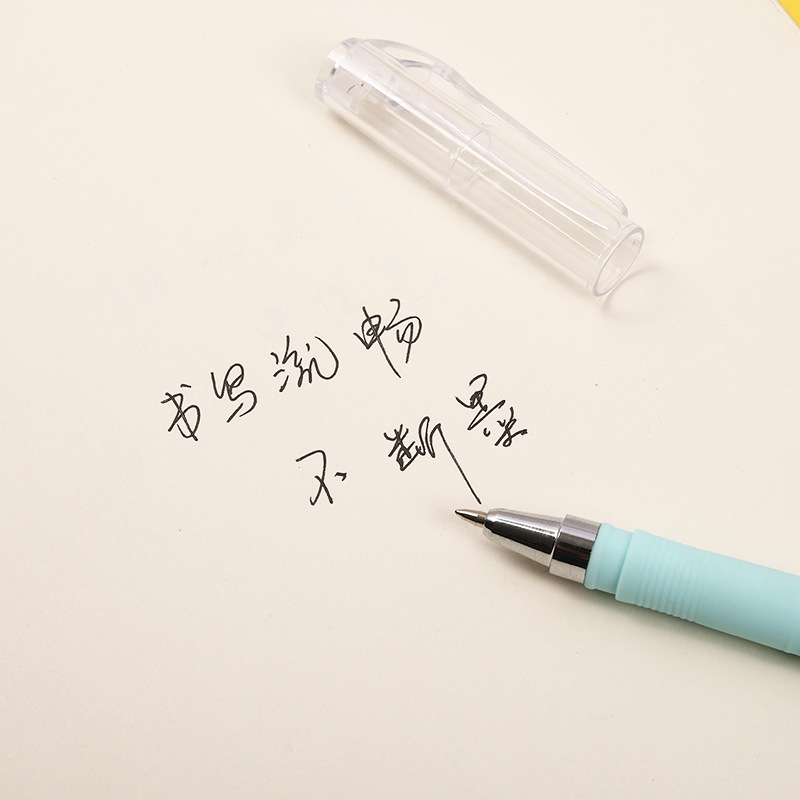 书写流畅
不断墨